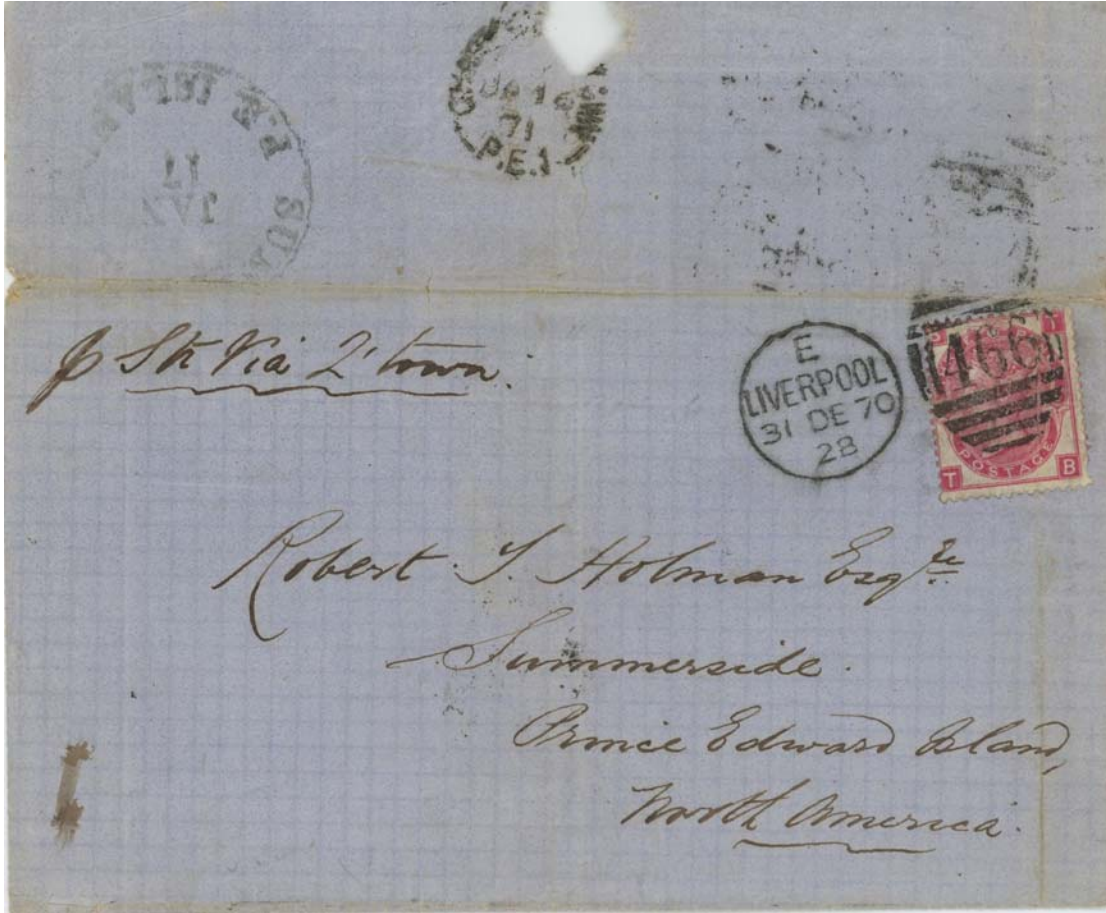 JA 16
71
P.E.I
P.E. ISLA
17
JAN
SUM
p Str Via Q'town.
E
LIVERPOOL
31 DE 70
28
466
POSTAGE
T B
Robert T. Holman Esqre
Summerside.
Prince Edward Island,
North America.